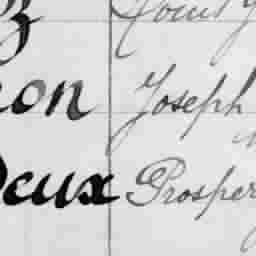 Louis
on Joseph
eux Prosper